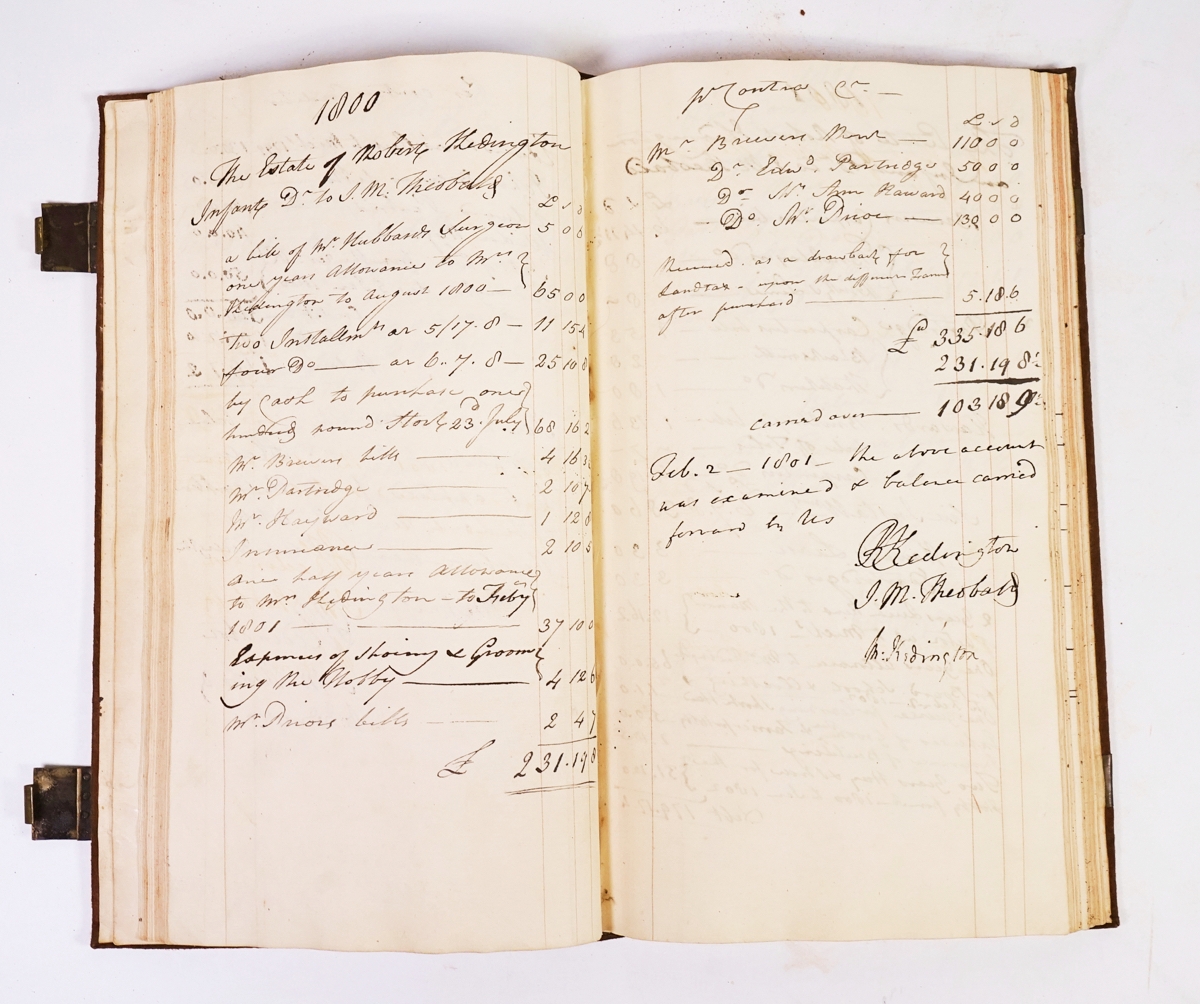 1800
The Estate of Robert Kedington
Infant, Dr. to J. M. Theobald
£ s d
a bill of Mr. Hubbards Surgeon 5 0 6
one years Allowance to Mrs.
Kedington to August 1800 — 65 0 0
two Installmts ar 5/17.8 — 11 15 4
four Do — ar 6..7.8 — 25 10 8
by Cash to purchase one
hundred pound Stock 23d July 68 16 2
Mr. Brewers bills — 4 16
Mr. Partridge — 2 10 7
Mr. Hayward — 1 12 8
Insurance — 2 10 5
one half years Allowance
to Mrs Kedington — to Feby
1801 — 37 10 0
Expences of Shoing & Groom
ing the Hobby — 4 12 6
Mr. Priors bills — 2 4 7
£ 231.19 8
pr Contra Cr. —
£ s d
Mr Brewers Rent — 110 0 0
Do. Edwd. Partridge 50 0 0
Do Mr Ann Haward 40 0 0
Do Mr. Prior — 130 0 0
Received as a drawback for
Landtax - upon the different Farms
after purchased — 5.18.6
£ 335.18 6
231.19 8
carried over — 103 18 9
Feb. 2 — 1801 — the above account
was examined & balance carried
forward by us
R Kedington
J. M. Theobald
M: Kedington